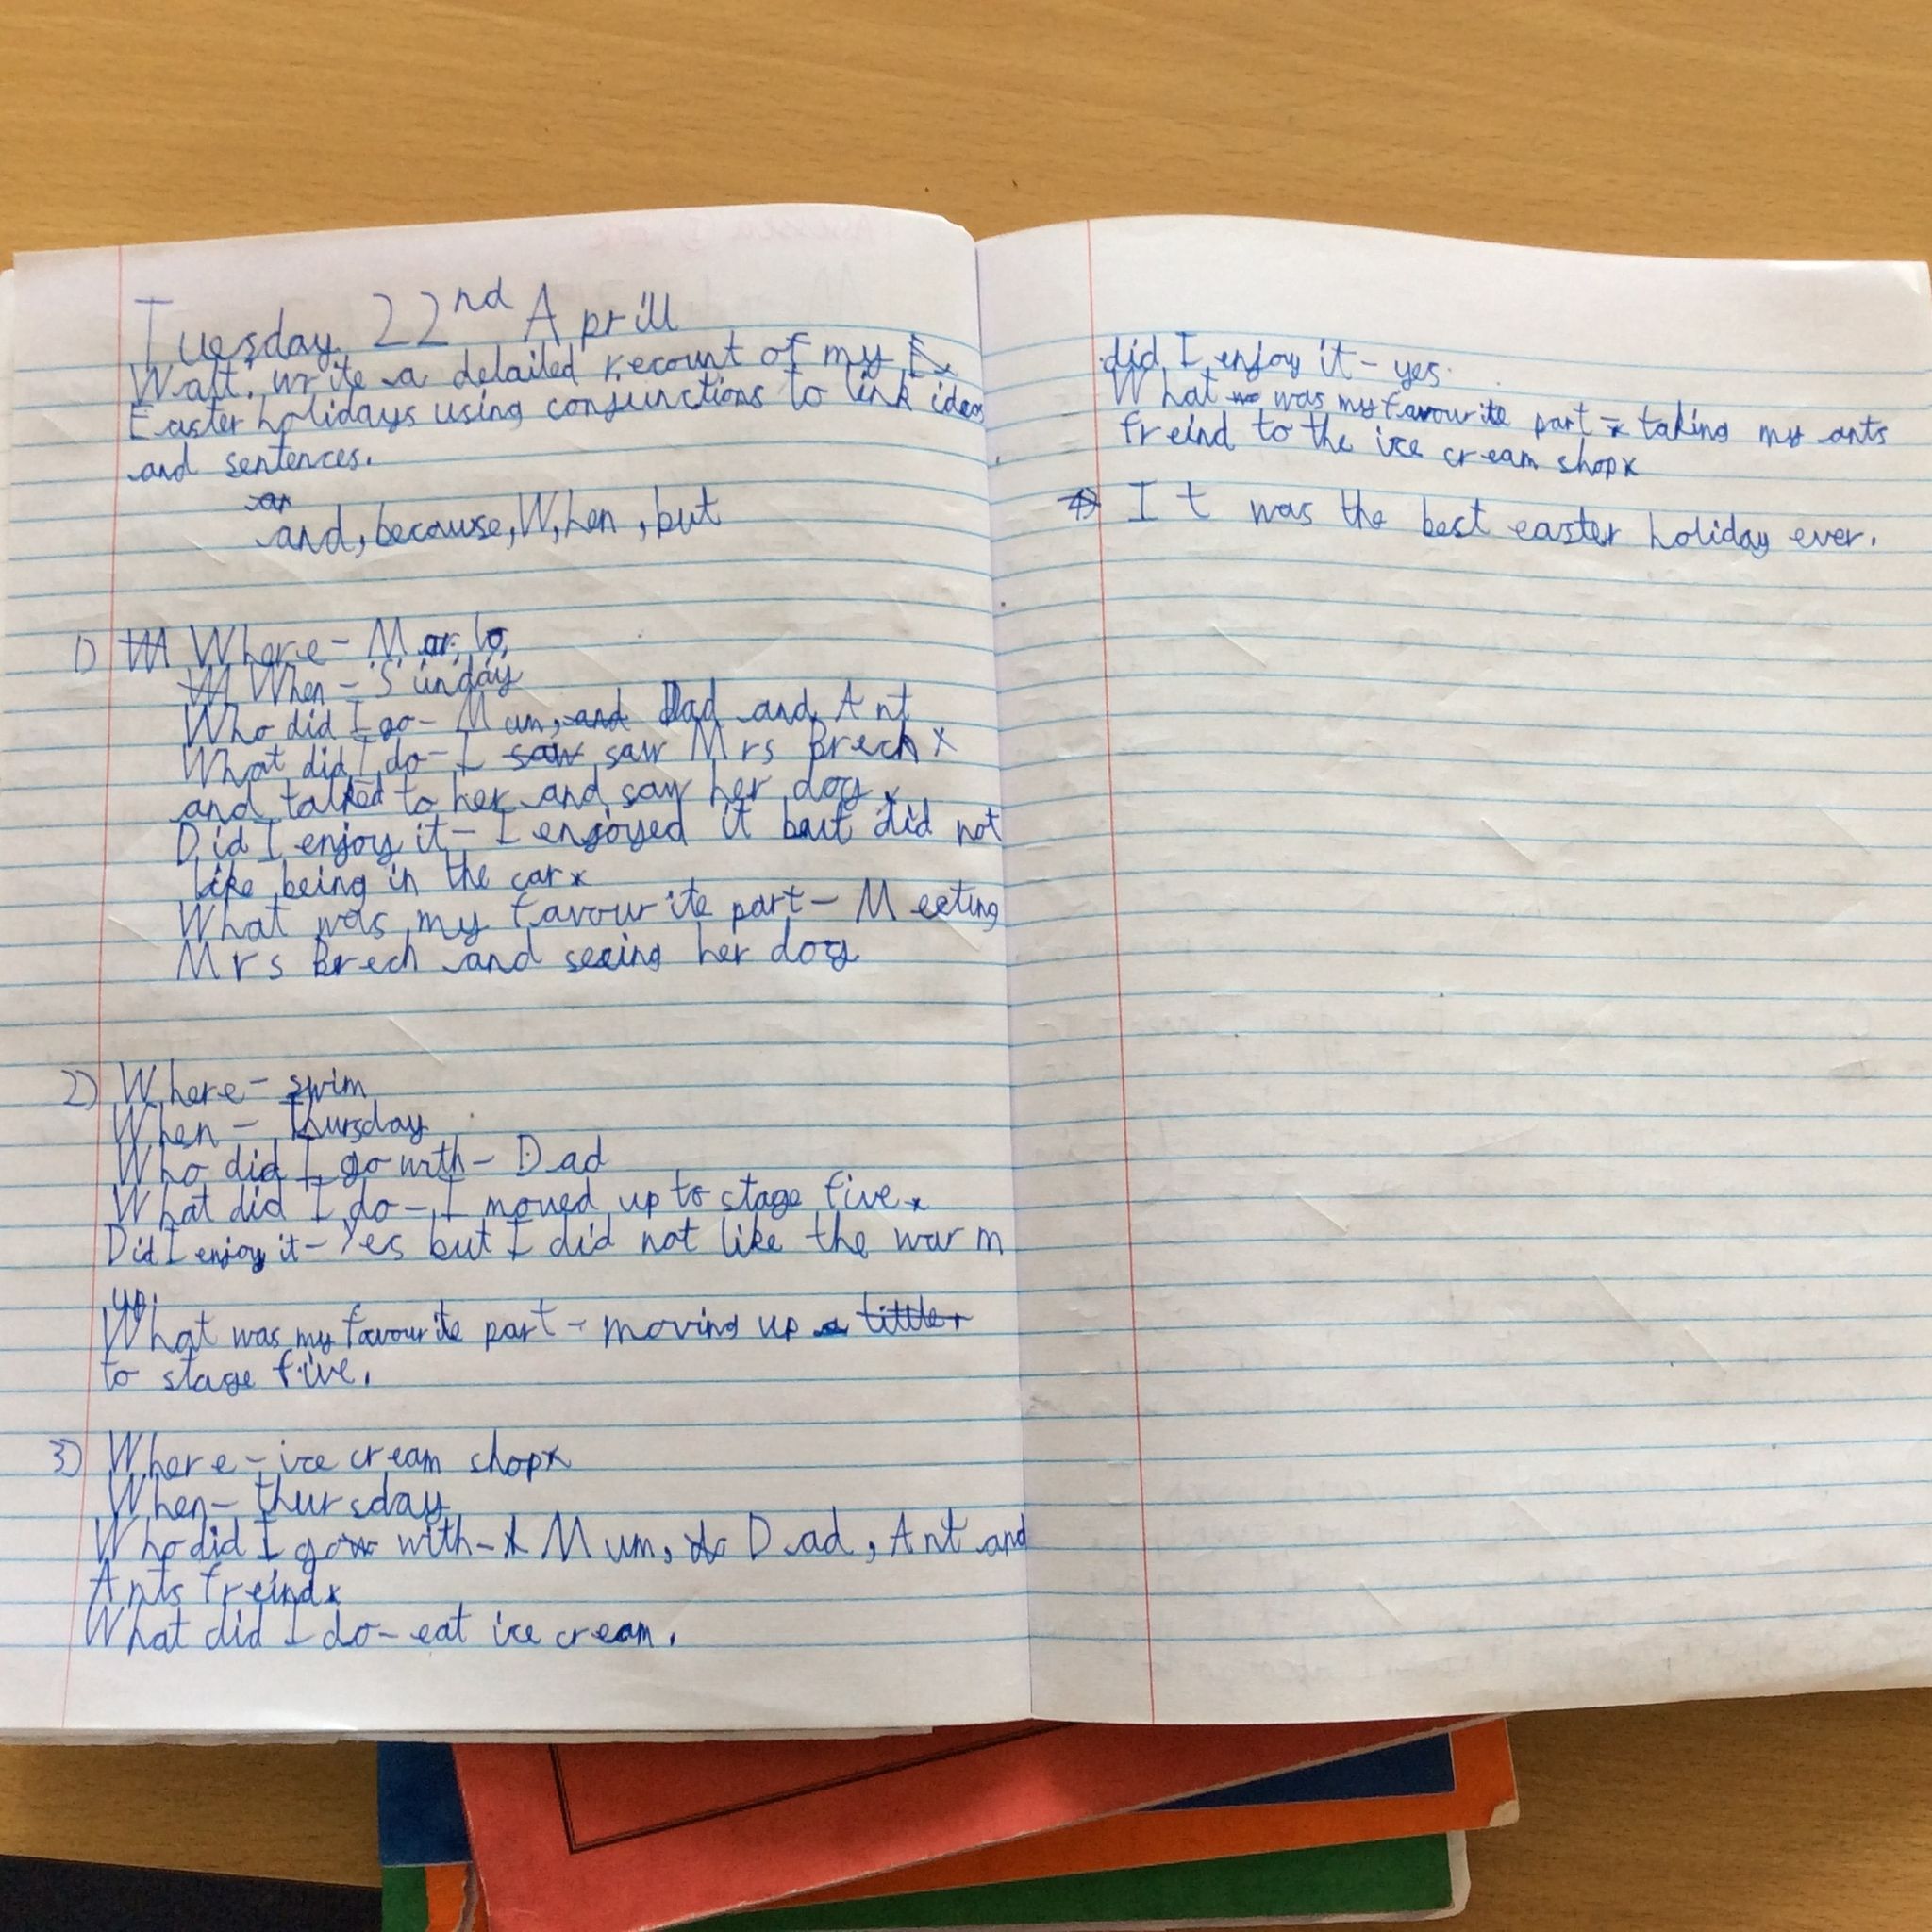 Tuesday 22nd Aprill
Walt: write a detailed recount of my
Easter holidays using conjunctions to link ideas
and sentences.
and, because, When, but
1) Where-
When - Sunday
Who did I go - Mum, and Dad and Ant
What did I do - I saw saw Mrs Brech
and talked to her and say her dog
Did I enjoy it - I enjoyed it but did not
like being in the car
What was my favourite part - Meeting
Mrs Brech and seeing her dog
2) Where - swim
When - Thursday
Who did I go with - Dad
What did I do - I moved up to stage five
Did I enjoy it - Yes but I did not like the warm
up.
What was my favourite part - moving up a
to stage five.
3) Where - ice cream shop
When - thursday
Who did I go with - Mum, Dad, Ant and
Ants freind
What did I do - eat ice cream.
did I enjoy it - yes.
What was my favourite part - taking my ants
freind to the ice cream shop
4) It was the best easter holiday ever.